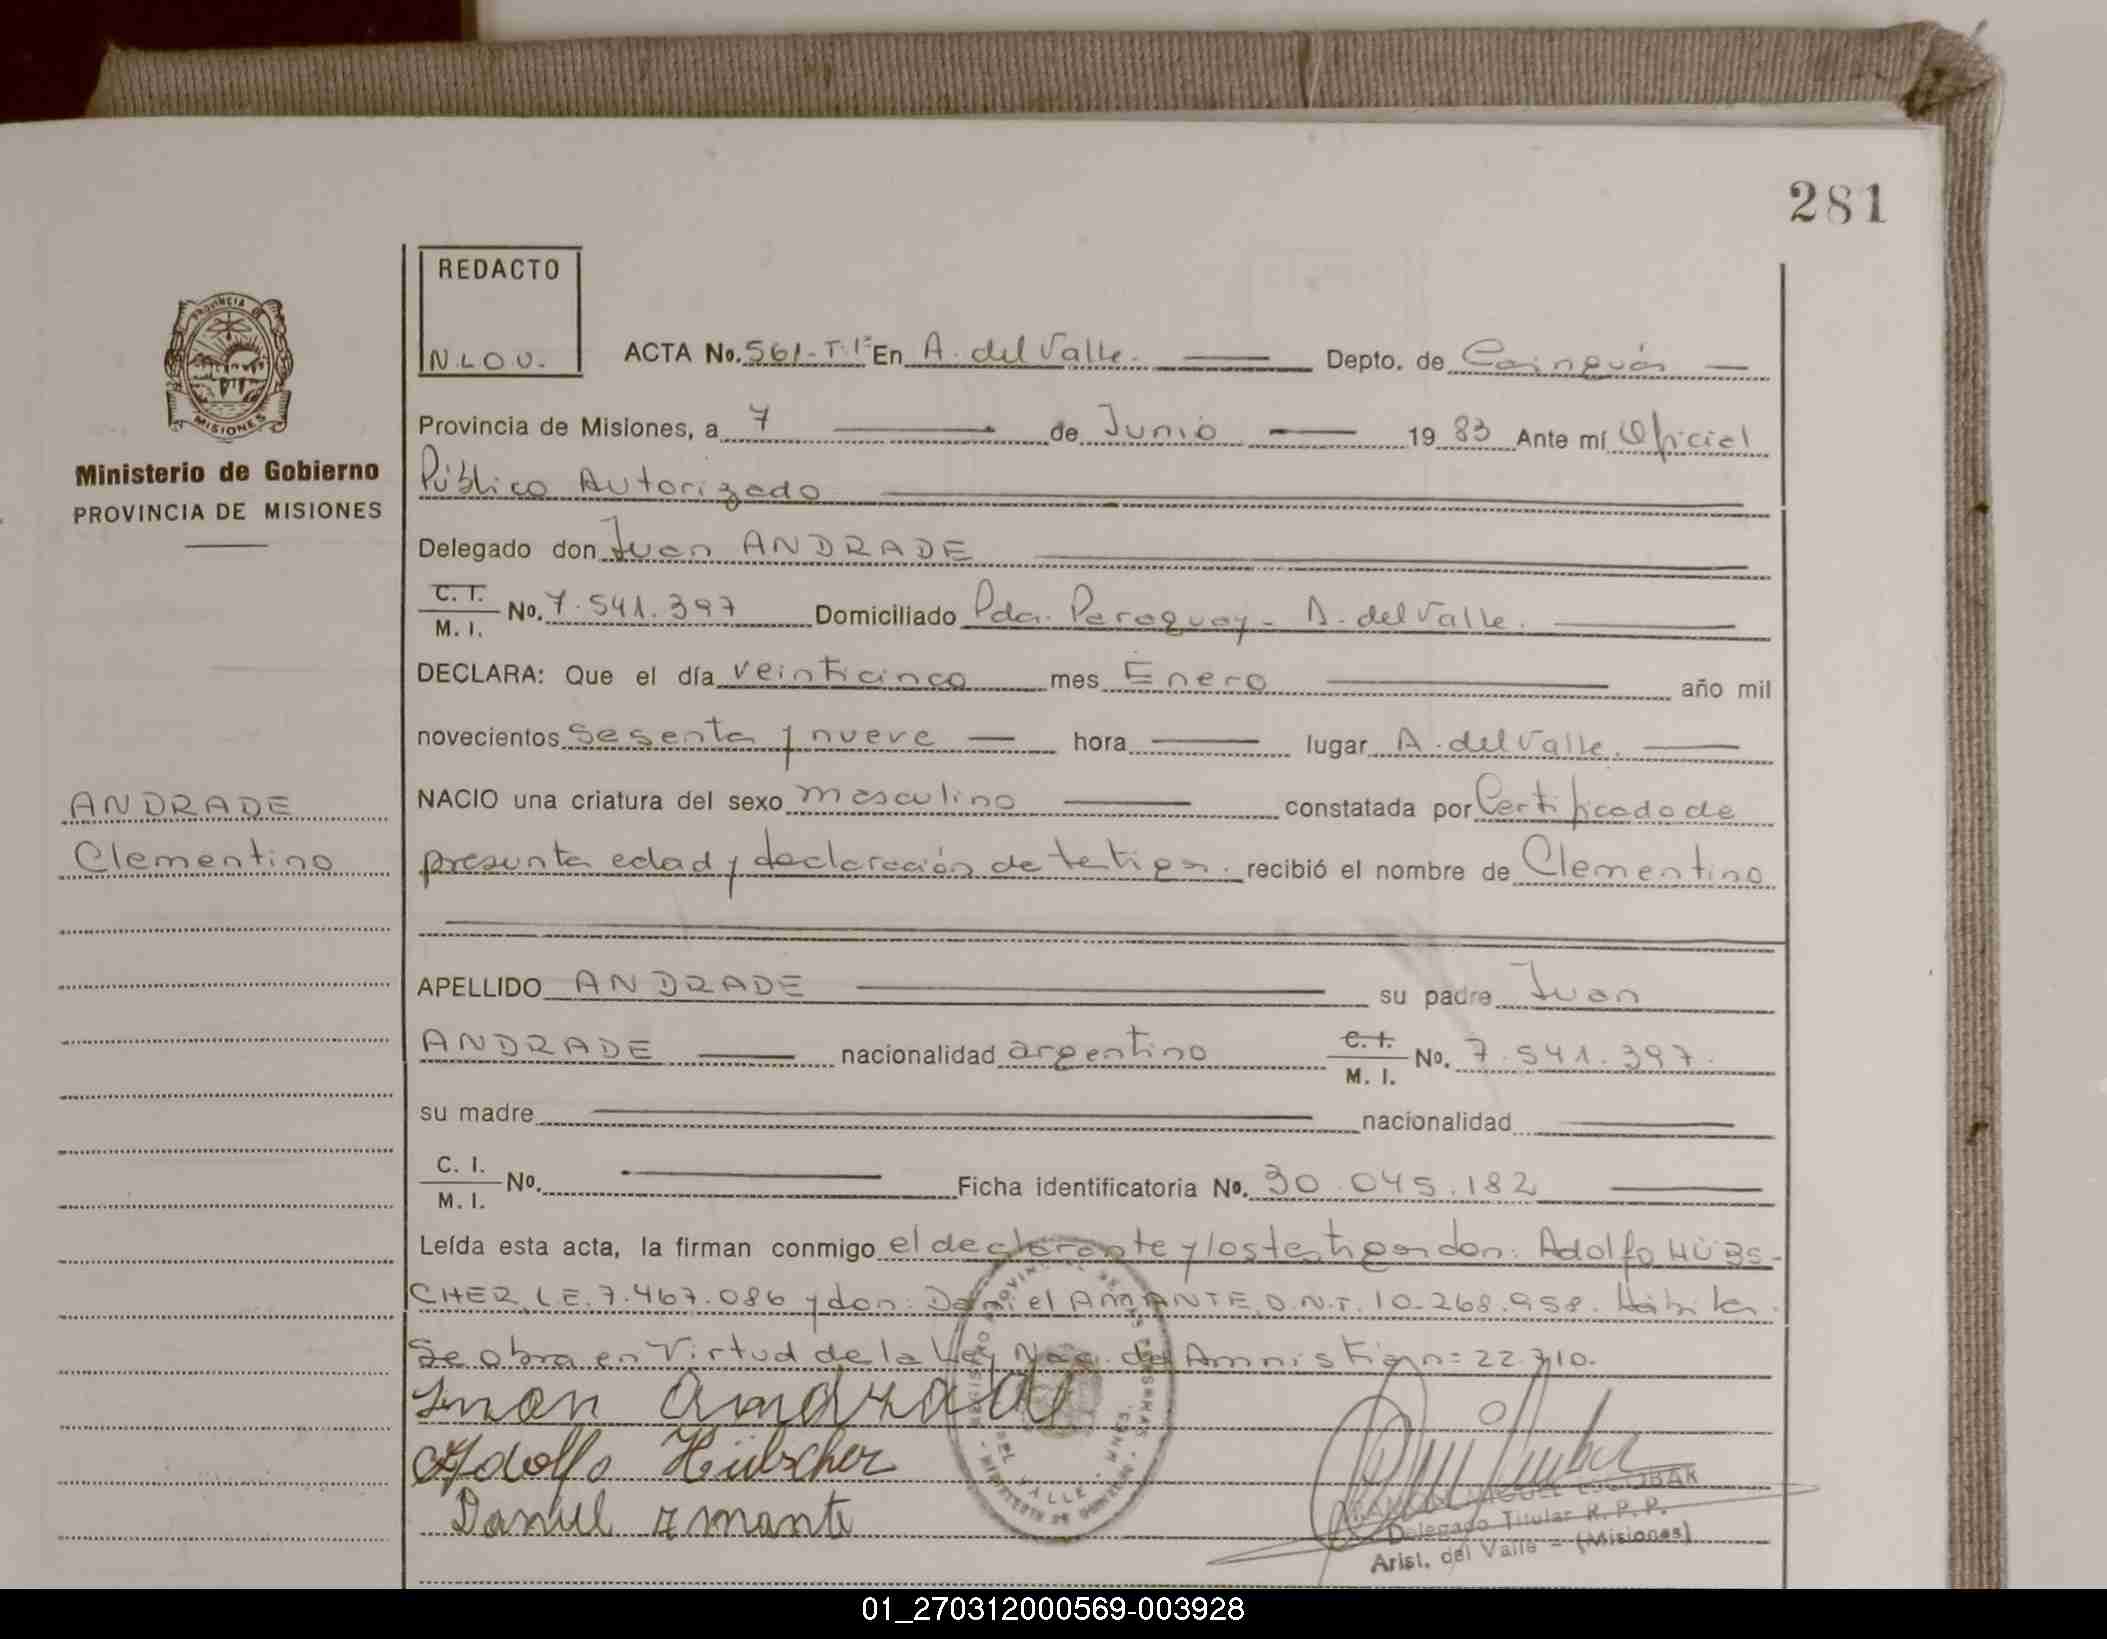 281
REDACTO
N.L.O.U.
ACTA No. 561-T.1º En A. del Valle. Depto. de Cainguás
PROVINCIA DE
MISIONES
Ministerio de Gobierno
PROVINCIA DE MISIONES
Provincia de Misiones, a 7 de Junio 1983 Ante mí Oficial
Público Autorizado
Delegado don Juan ANDRADE
C. I. M. I. No. 7.541.397 Domiciliado Pda. Paraguay - A. del Valle.
DECLARA: Que el día veinticinco mes Enero año mil
novecientos sesenta y nueve hora lugar A. del Valle.
ANDRADE
Clementino
NACIO una criatura del sexo masculino constatada por Certificado de
presunta edad y declaración de testigos. recibió el nombre de Clementino
APELLIDO ANDRADE su padre Juan
ANDRADE nacionalidad argentino C. I. M. I. No. 7.541.397.
su madre nacionalidad
C. I. M. I. No. Ficha identificatoria No. 30.045.182
Leída esta acta, la firman conmigo el declarante y los testigos don: Adolfo HÜBS-
CHER L.E. 7.467.086 y don: Daniel AMANTE D.N.I. 10.268.958. Hábiles.
Se obra en Virtud de la Ley Nac. de Amnistía nº 22.710.
Juan Andrade
Adolfo Hübscher
Daniel Amante
MIGUEL ESCOBAR
Delegado Titular R. P. P.
Arist. del Valle - (Misiones)
01_270312000569-003928